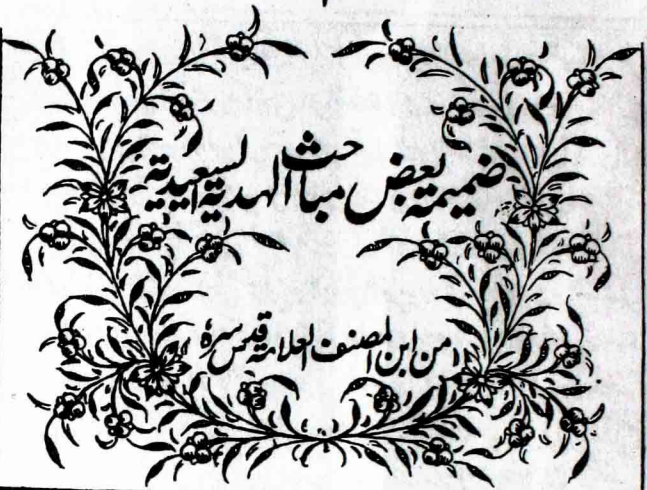 ضميمة بعض مباحث الهدية السعيدية
من ابن المصنف العلامة قدس سرہٗ